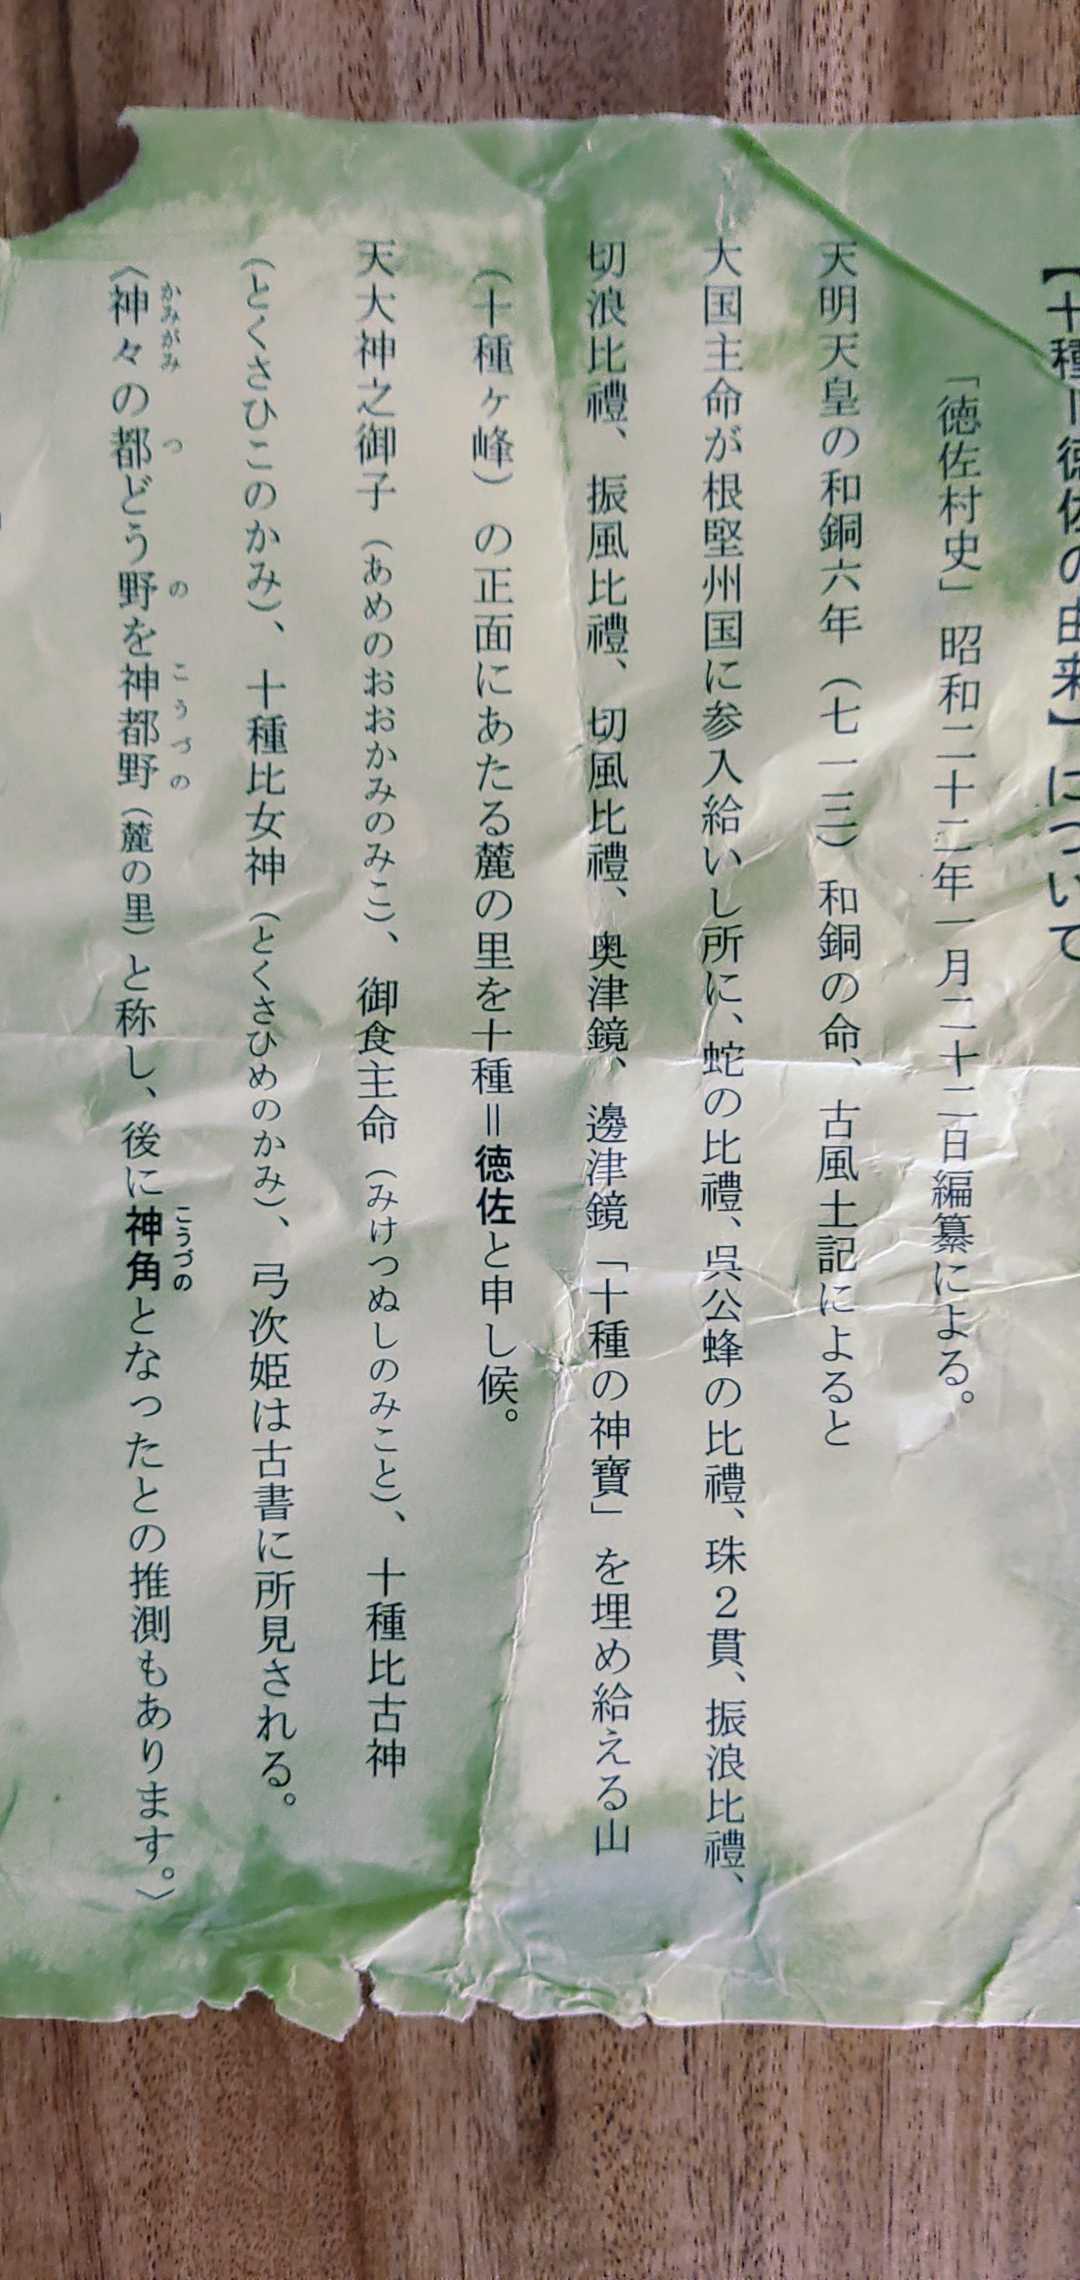 【十種＝徳佐の由来】について
「徳佐村史」昭和二十二年一月二十二日編纂による。
天明天皇の和銅六年（七一三）和銅の命、古風土記によると
大国主命が根堅州国に参入給いし所に、蛇の比禮、呉公蜂の比禮、珠２貫、振浪比禮、
切浪比禮、振風比禮、切風比禮、奥津鏡、邊津鏡「十種の神寶」を埋め給える山
（十種ヶ峰）の正面にあたる麓の里を十種＝徳佐と申し候。
天大神之御子（あめのおおかみのみこ）、御食主命（みけつぬしのみこと）、十種比古神
（とくさひこのかみ）、十種比女神（とくさひめのかみ）、弓次姫は古書に所見される。
〈神々の都どう野を神都野（麓の里）と称し、後に神角となったとの推測もあります。〉
かみがみ つ の こうづの こうづの